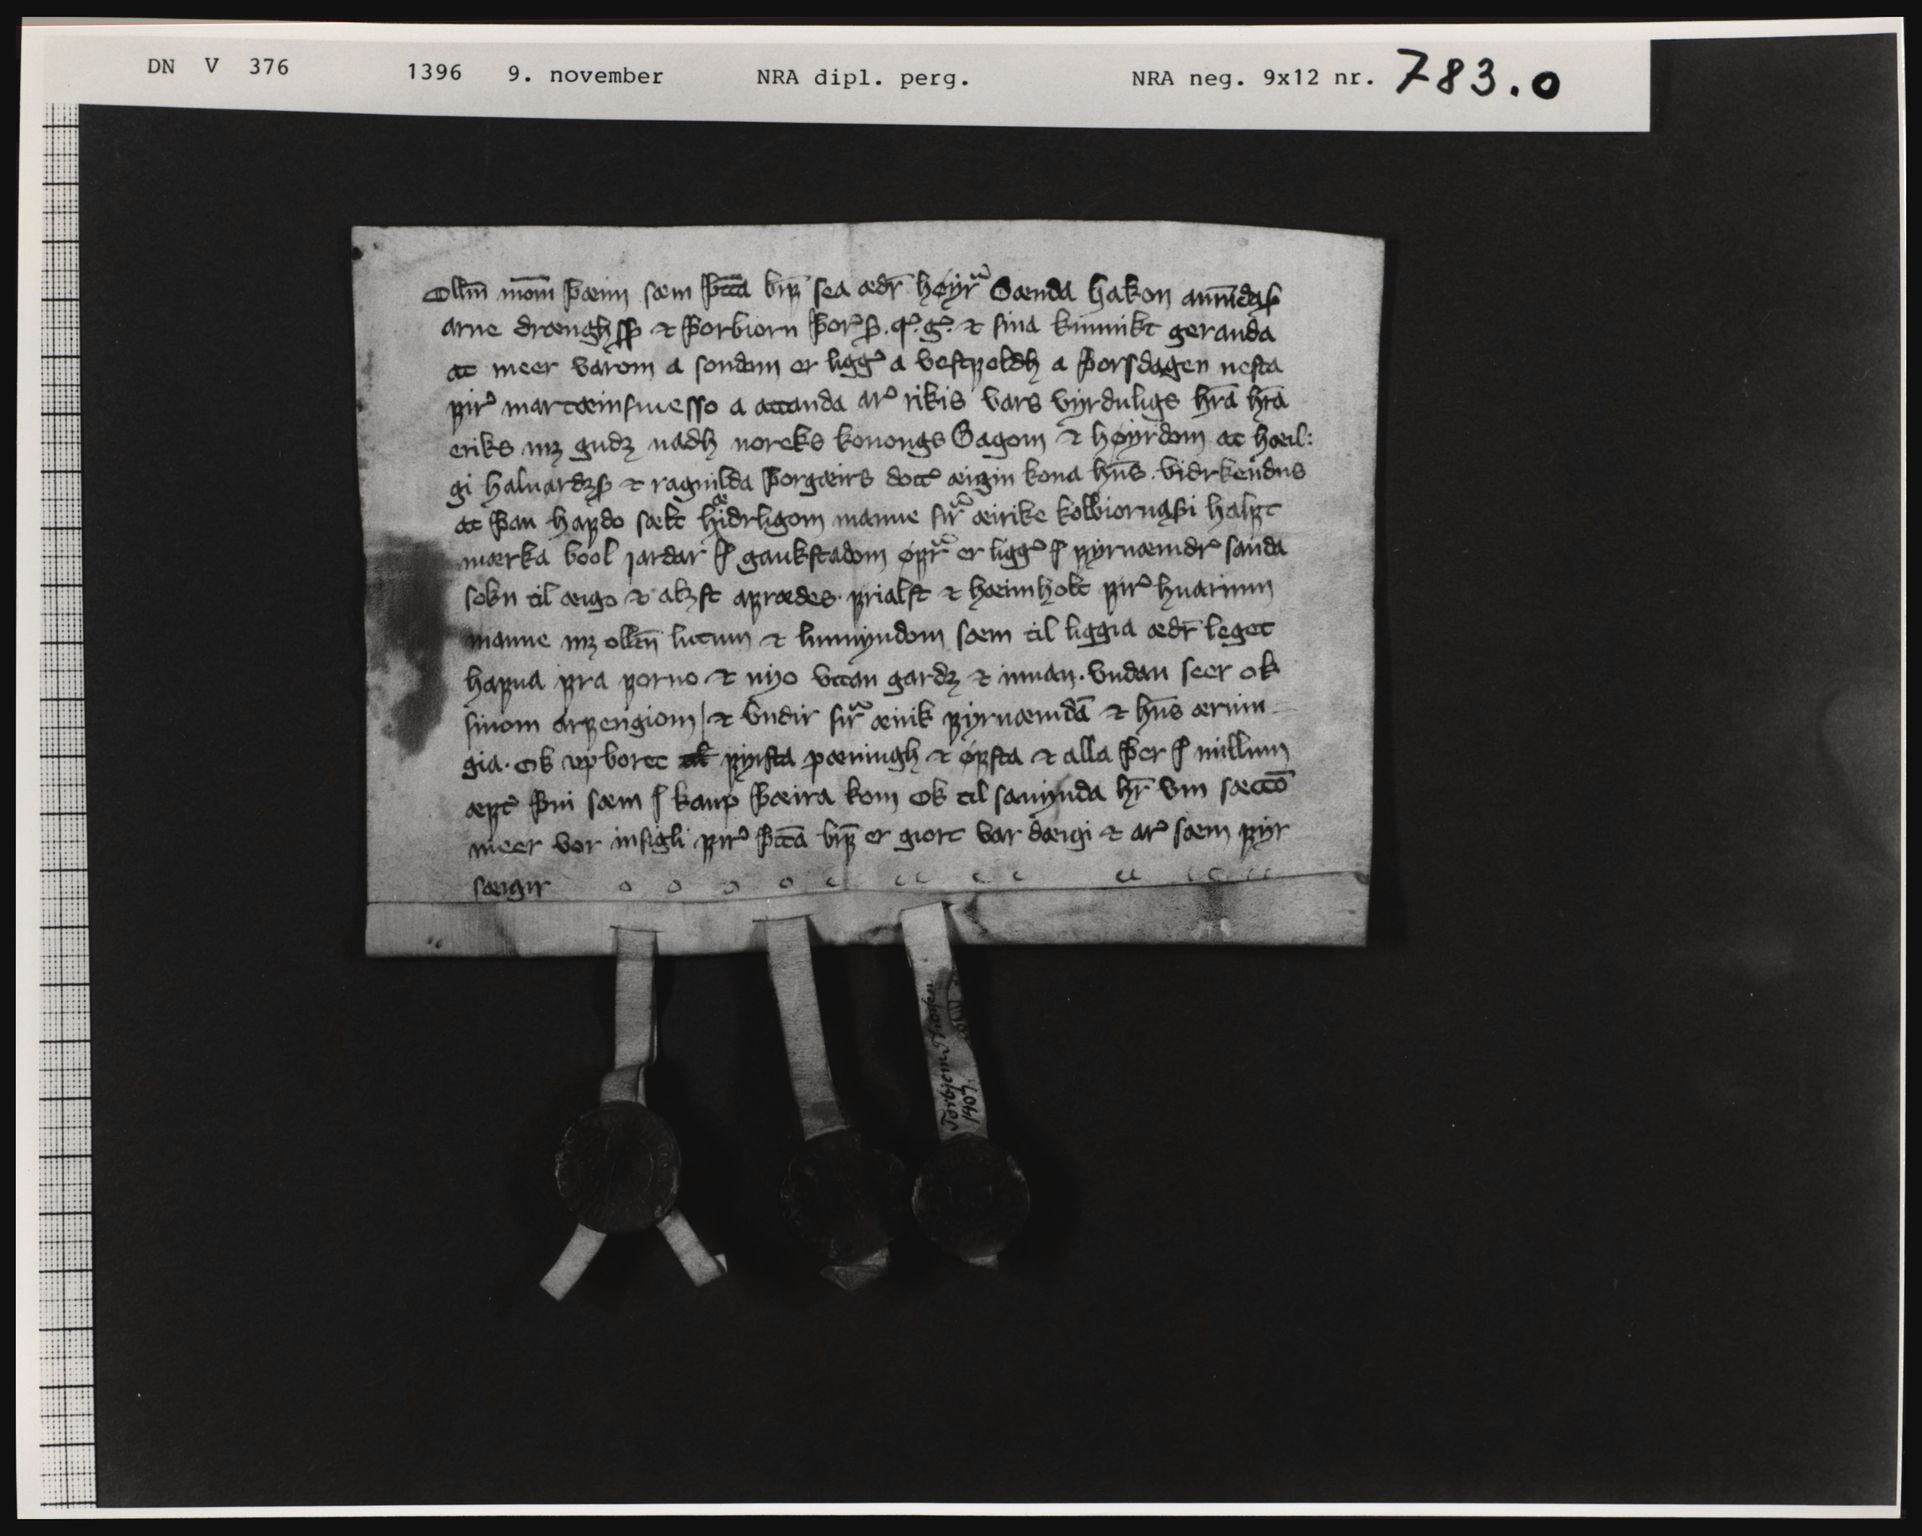 DN V 376 1396 9. november NRA dipl. perg. NRA neg. 9x12 nr. 783.0
Ollm̄ mōm þæim sæm þtta brf sea ædr høyra Sænda hakon amūdaſ
arne drænghſſ ⁊ þorbiorn þorͬſ. q. g. ⁊ sina kunnikt geranda
at meer varom a sondom er ligg͛ a vestfoldh a þorsdagen nesta
firͬ martæinsmesso a attanda arͬ rikis vars vyrduligs hr̄a hr̄a
eriks mꝫ gudꝫ nadh noreks konongs Sagom ⁊ høyrdom at hæil:
gi haluardzſ ⁊ ragnilda þorgæirs dott͛ æigin kona hn̄s. vidrkendus
at þau hafdo sælt hæidrligom manne sira æirike kolbiornasyni halft
mærka bool jardar j gaukstadom øfra er ligg͛ j fyrnæmdr͛ sanda
sokn til æigo ⁊ alzst afrædes. frialst ⁊ hæimholt firͬ huarium
manne mꝫ ollm̄ lutum ⁊ lunnyndom sæm til liggia ædr leget
hafua fra forno ⁊ nyo vttan gardꝫ ⁊ innan. vndan seer ok
sinom arfengiom ⁊ vndir sira æirik fyrnæmda ⁊ hn̄s ærfin
gia. ok vpboret fyrsta pæningh ⁊ øfsta ⁊ alla þer j millum
æft͛ þui sæm j kaup þæira kom ok til sanynda hr̄ vm sætto
meer vor insigli firͬ þtta brf er giort var dæigi ⁊ arͬ sæm fyr
sæigir
Torbjørn Thorsen
1907.